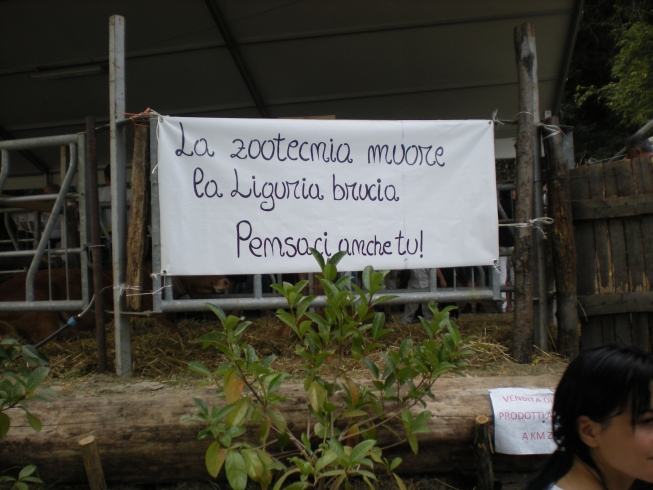 La zootecnia muore
la Liguria brucia
Pensaci anche tu!
VENDITA DI
PRODOTTI A
A KM Z